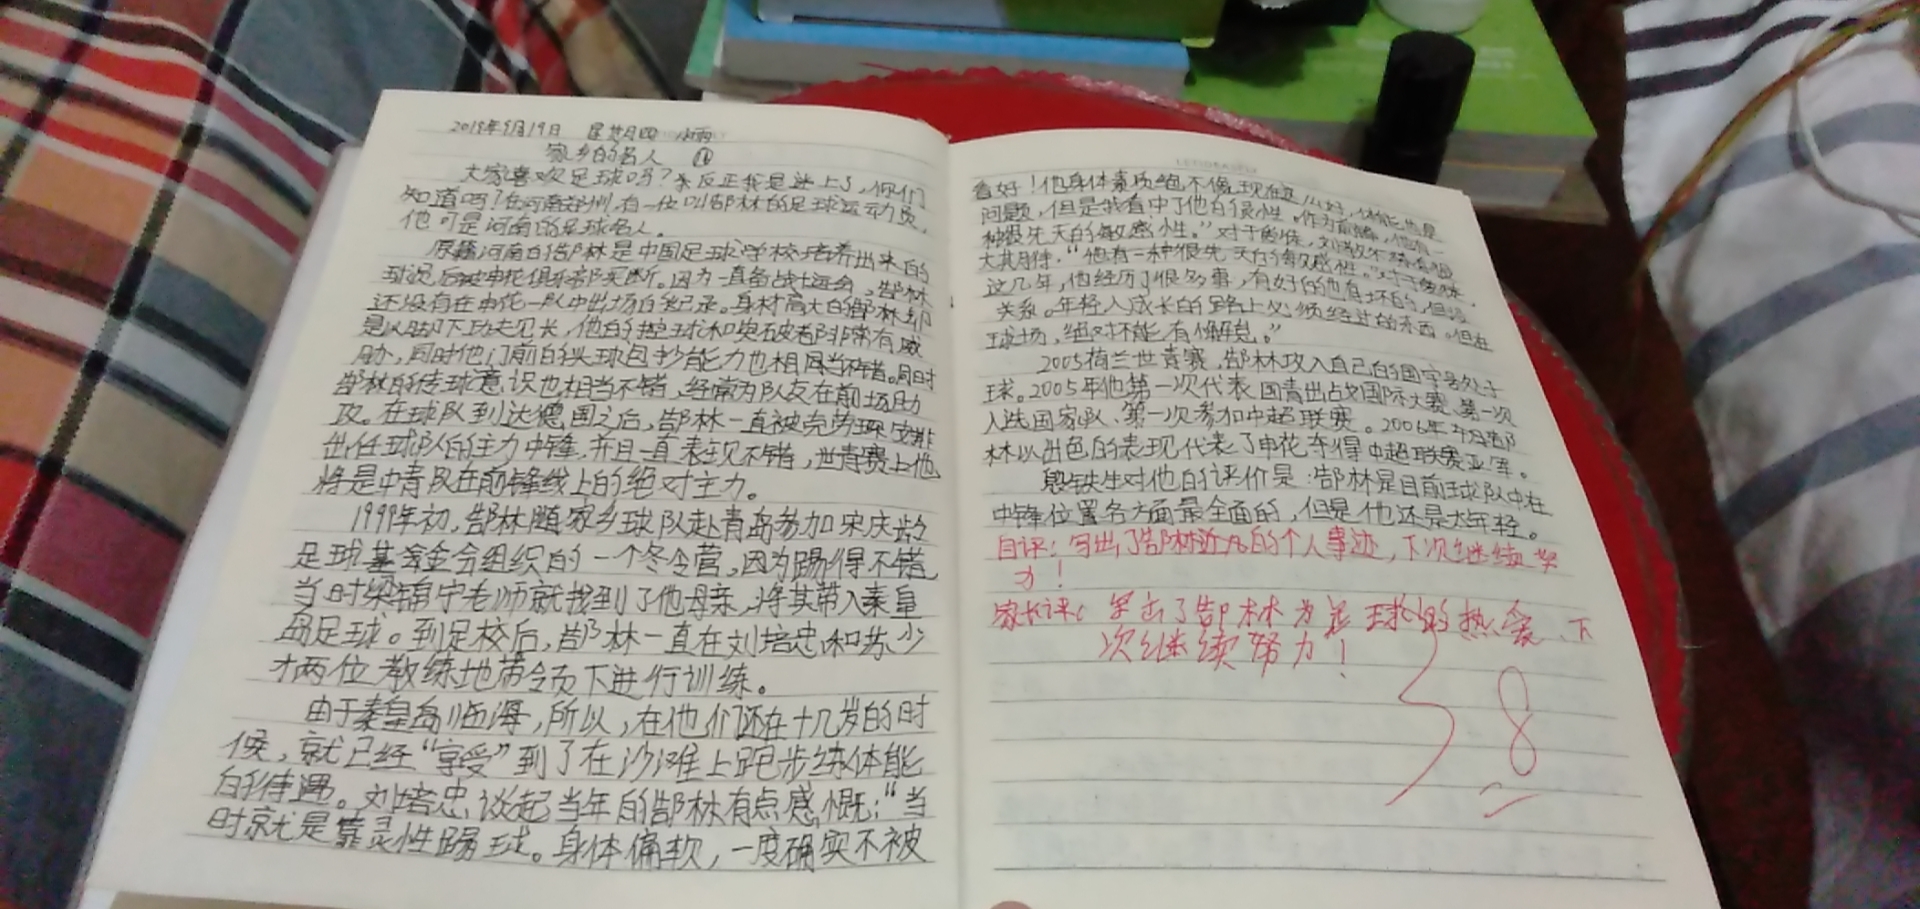 2019年9月19日 星期四 小雨
家乡的名人 ⑱
大家喜欢足球吗?亲反正我是迷上了,你们
知道吗?在河南郑州,有一位叫郜林的足球运动员,
他可是河南的足球名人。
原籍河南的郜林是中国足球学校培养出来的
球员,后被申花俱乐部买断。因为一直备战世运会,郜林
还没有在申花一队中出场的纪录。身材高大的郜林却
是以脚下功夫见长,他的控球和突破都非常有威
胁,同时他门前的头球包抄能力也相当不错。同时
郜林的传球意识也相当不错,经常为队友在前场助
攻。在球队到达德国之后,郜林一直被克劳琛安排
出任球队的主力中锋,并且一直表现不错,世青赛上他
将是中青队在前锋线上的绝对主力。
1999年初,郜林随家乡球队赴青岛参加宋庆龄
足球基金会组织的一个冬令营,因为踢得不错,
当时梁锦宁老师就找到了他母亲,将其带入秦皇
岛足球。到足校后,郜林一直在刘培忠和苏少
才两位教练地带领下进行训练。
由于秦皇岛临海,所以,在他们还在十几岁的时
候,就已经“享受”到了在沙滩上跑步练体能
的待遇。刘培忠谈起当年的郜林有点感慨:“当
时就是靠灵性踢球。身体偏软,一度确实不被
看好!他身体素质绝不像现在这么好,体能也是
问题,但是我看中了他的灵性。作为前锋,他有一
种很先天的敏感性。”对于爱徒,刘
大其期待,“他有一种很先天的敏感性。”对于
这几年,他经历了很多事,有好的也有坏的,但没
关系。年轻人成长的路上必须经过的东西。但在
球场,绝对不能有懈怠。”
2005荷兰世青赛,郜林攻入自己的国字号处子
球。2005年他第一次代表国青出战国际大赛、第一次
入选国家队、第一次参加中超联赛。2006年
林以出色的表现代表了申花夺得中超联赛亚军。
殷铁生对他的评价是:郜林是目前球队中在
中锋位置各方面最全面的,但是他还是太年轻。
自评:写出了郜林近几的个人事迹,下次继续努
力!
家长评:写出了郜林为足球的热爱、下
次继续努力!
8